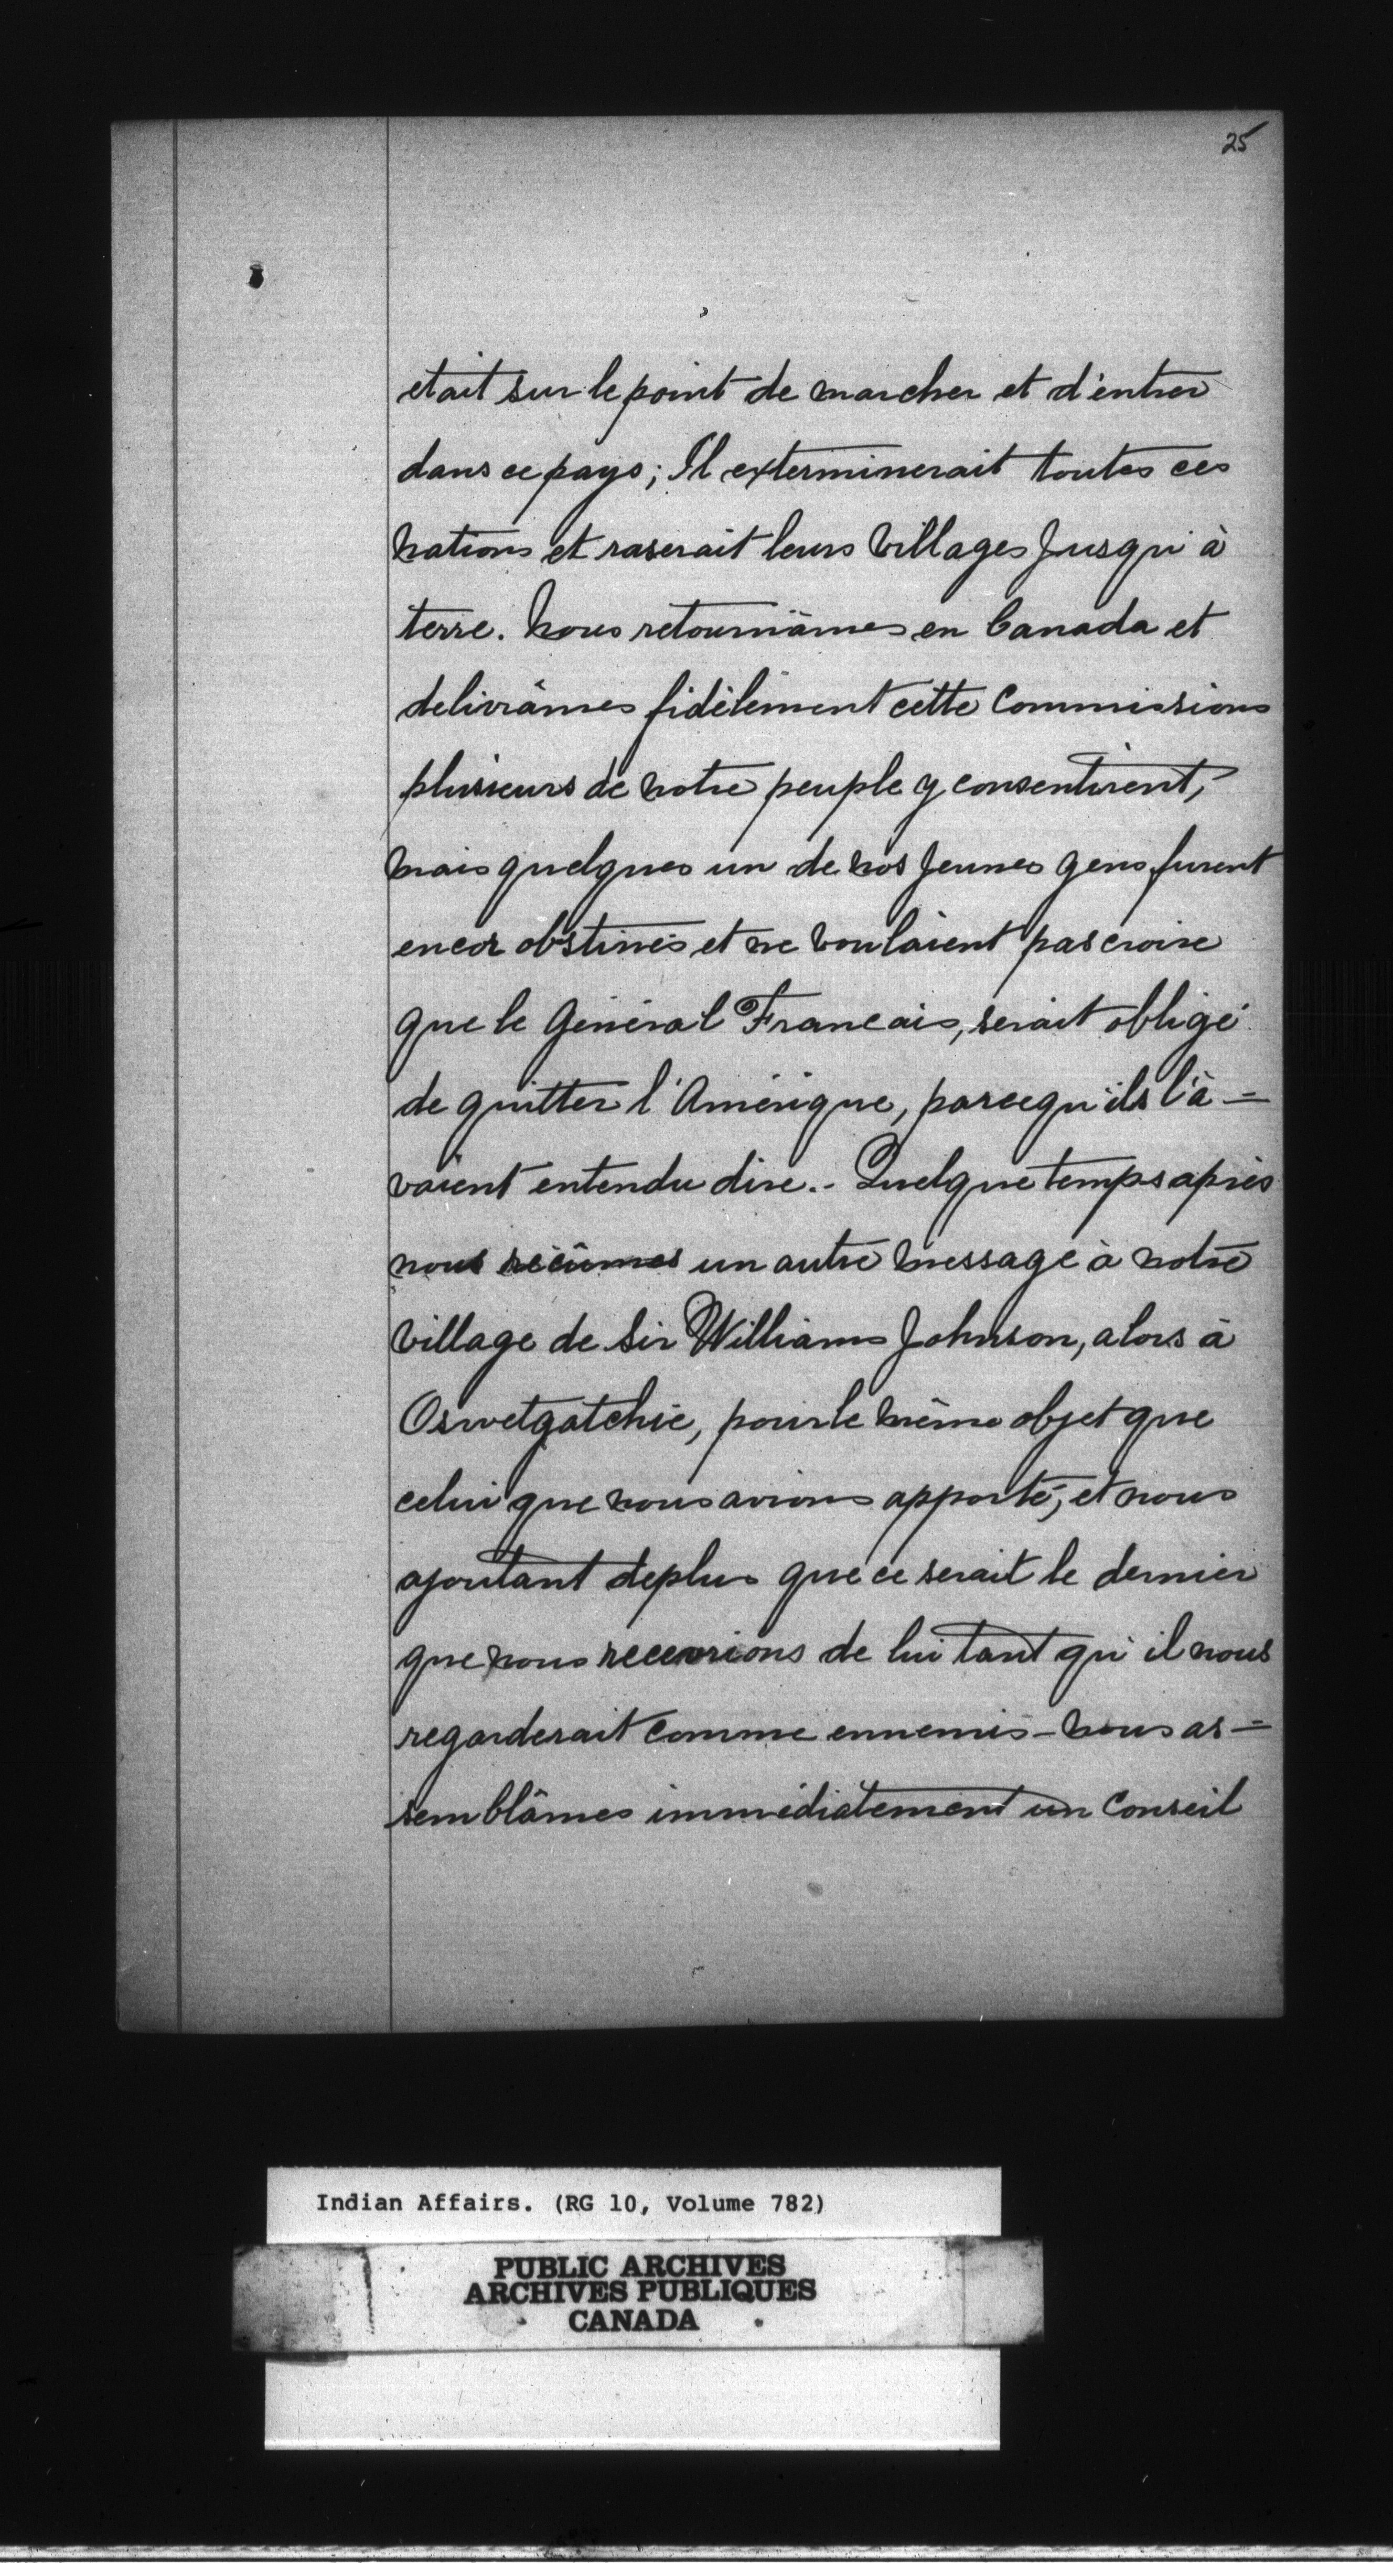 25
etait sur le point de marcher et d'entrer
dans ce pays; Il exterminerait toutes ces
nations et raserait leurs Villages jusqu'à
terre. Nous retournâmes en Canada et
delivrâmes fidèlement cette Commissions
plusieurs de notre peuple y consentirent,
mais quelques un de nos jeunes gens furent
encor obstinés et ne voulaient pas croire
que le Général Francais, serait obligé
de quitter l'Amérique, parcequ'ils l'a=
vaient entendu dire.- Quelque temps après
nous récûmes un autre message à notre
Village de Sir Williams Johnson, alors à
Oswetgatchie, pour le même objet que
celui que nous avions apporté, et nous
ajoutant deplus que ce serait le dernier
que nous recevrions de lui tant qu'il nous
regarderait comme ennemis - nous as=
semblâmes immédiatement un Conseil
Indian Affairs. (RG 10, Volume 782)
PUBLIC ARCHIVES
ARCHIVES PUBLIQUES
CANADA